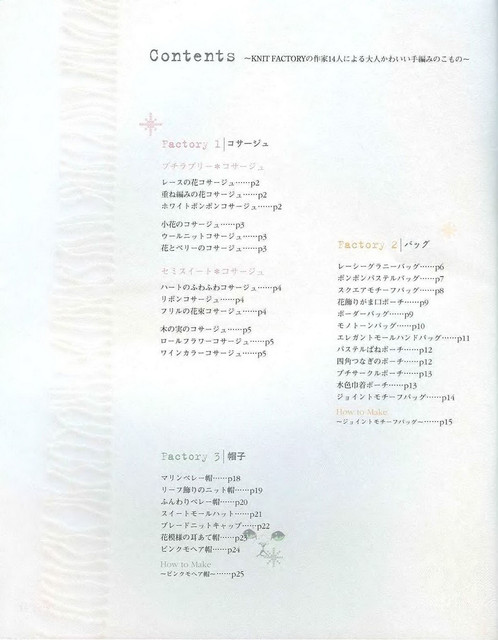 Contents ～KNIT FACTORYの作家14人による大人かわいい手編みのこもの～
Factory 1|コサージュ
プチラブリー＊コサージュ
レースの花コサージュ……p2
重ね編みの花コサージュ……p2
ホワイトポンポンコサージュ……p2
小花のコサージュ……p3
ウールニットコサージュ……p3
花とベリーのコサージュ……p3
セミスイート＊コサージュ
ハートのふわふわコサージュ……p4
リボンコサージュ……p4
フリルの花束コサージュ……p4
木の実のコサージュ……p5
ロールフラワーコサージュ……p5
ワインカラーコサージュ……p5
Factory 2|バッグ
レーシーグラニーバッグ……p6
ポンポンパステルバッグ……p7
スクエアモチーフバッグ……p8
花飾りがま口ポーチ……p9
ボーダーバッグ……p9
モノトーンバッグ……p10
エレガントモールハンドバッグ……p11
パステルばねポーチ……p12
四角つなぎのポーチ……p12
プチサークルポーチ……p13
水色巾着ポーチ……p13
ジョイントモチーフバッグ……p14
How to Make
～ジョイントモチーフバッグ～……p15
Factory 3|帽子
マリンベレー帽……p18
リーフ飾りのニット帽……p19
ふんわりベレー帽……p20
スイートモールハット……p21
ブレードニットキャップ……p22
花模様の耳あて帽……p23
ピンクモヘア帽……p24
How to Make
～ピンクモヘア帽～……p25